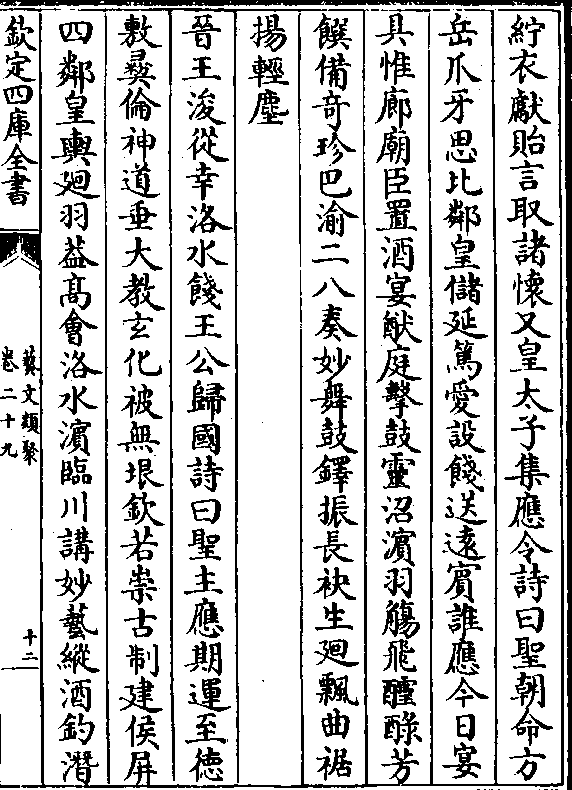 紵衣獻貽言取諸懷又皇太子集應令詩曰聖朝命方
岳爪牙思比鄰皇儲延篤愛設餞送逺賔誰應今日宴
具惟廊廟臣置酒宴猷庭擊鼓靈沼濵羽觴飛醽醁芳
饌備竒珍巴渝二八奏妙舞鼓鐸振長袂生廻飄曲裾
揚輕塵
晉王浚從幸洛水餞王公歸國詩曰聖主應期運至徳
敷彛倫神道垂大教玄化被無垠欽若崇古制建侯屏
四鄰皇輿廻羽葢髙會洛水濵臨川講妙藝縱酒釣潛
欽定四庫全書
藝文類聚
卷二十九
十二